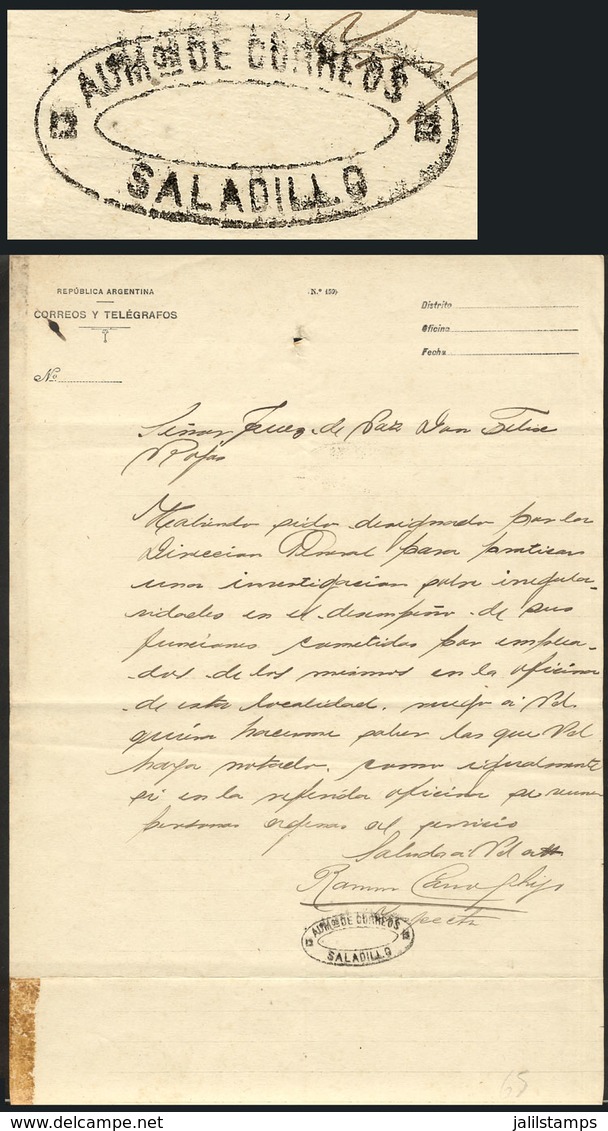 ADMon DE CORREOS
SALADILLO
REPÚBLICA ARGENTINA
CORREOS Y TELÉGRAFOS
No
(N.º 159)
Distrito
Oficina
Fecha
Señor Juez de Paz Don Felix
Rojas
Habiendo sido designado por la
Direccion General para practicar
una investigacion sobre irregula-
ridades en el desempeño de sus
funciones cometidas por emplea-
dos de los mismos en la oficina
de esta localidad, ruego a Vd.
quiera hacerme saber las que Vd
haya notado, como igualmente
si en la referida oficina se reunen
personas agenas al servicio
Saluda a Vd atte
Ramon Cano
ADMon DE CORREOS
SALADILLO
65
jalilstamps